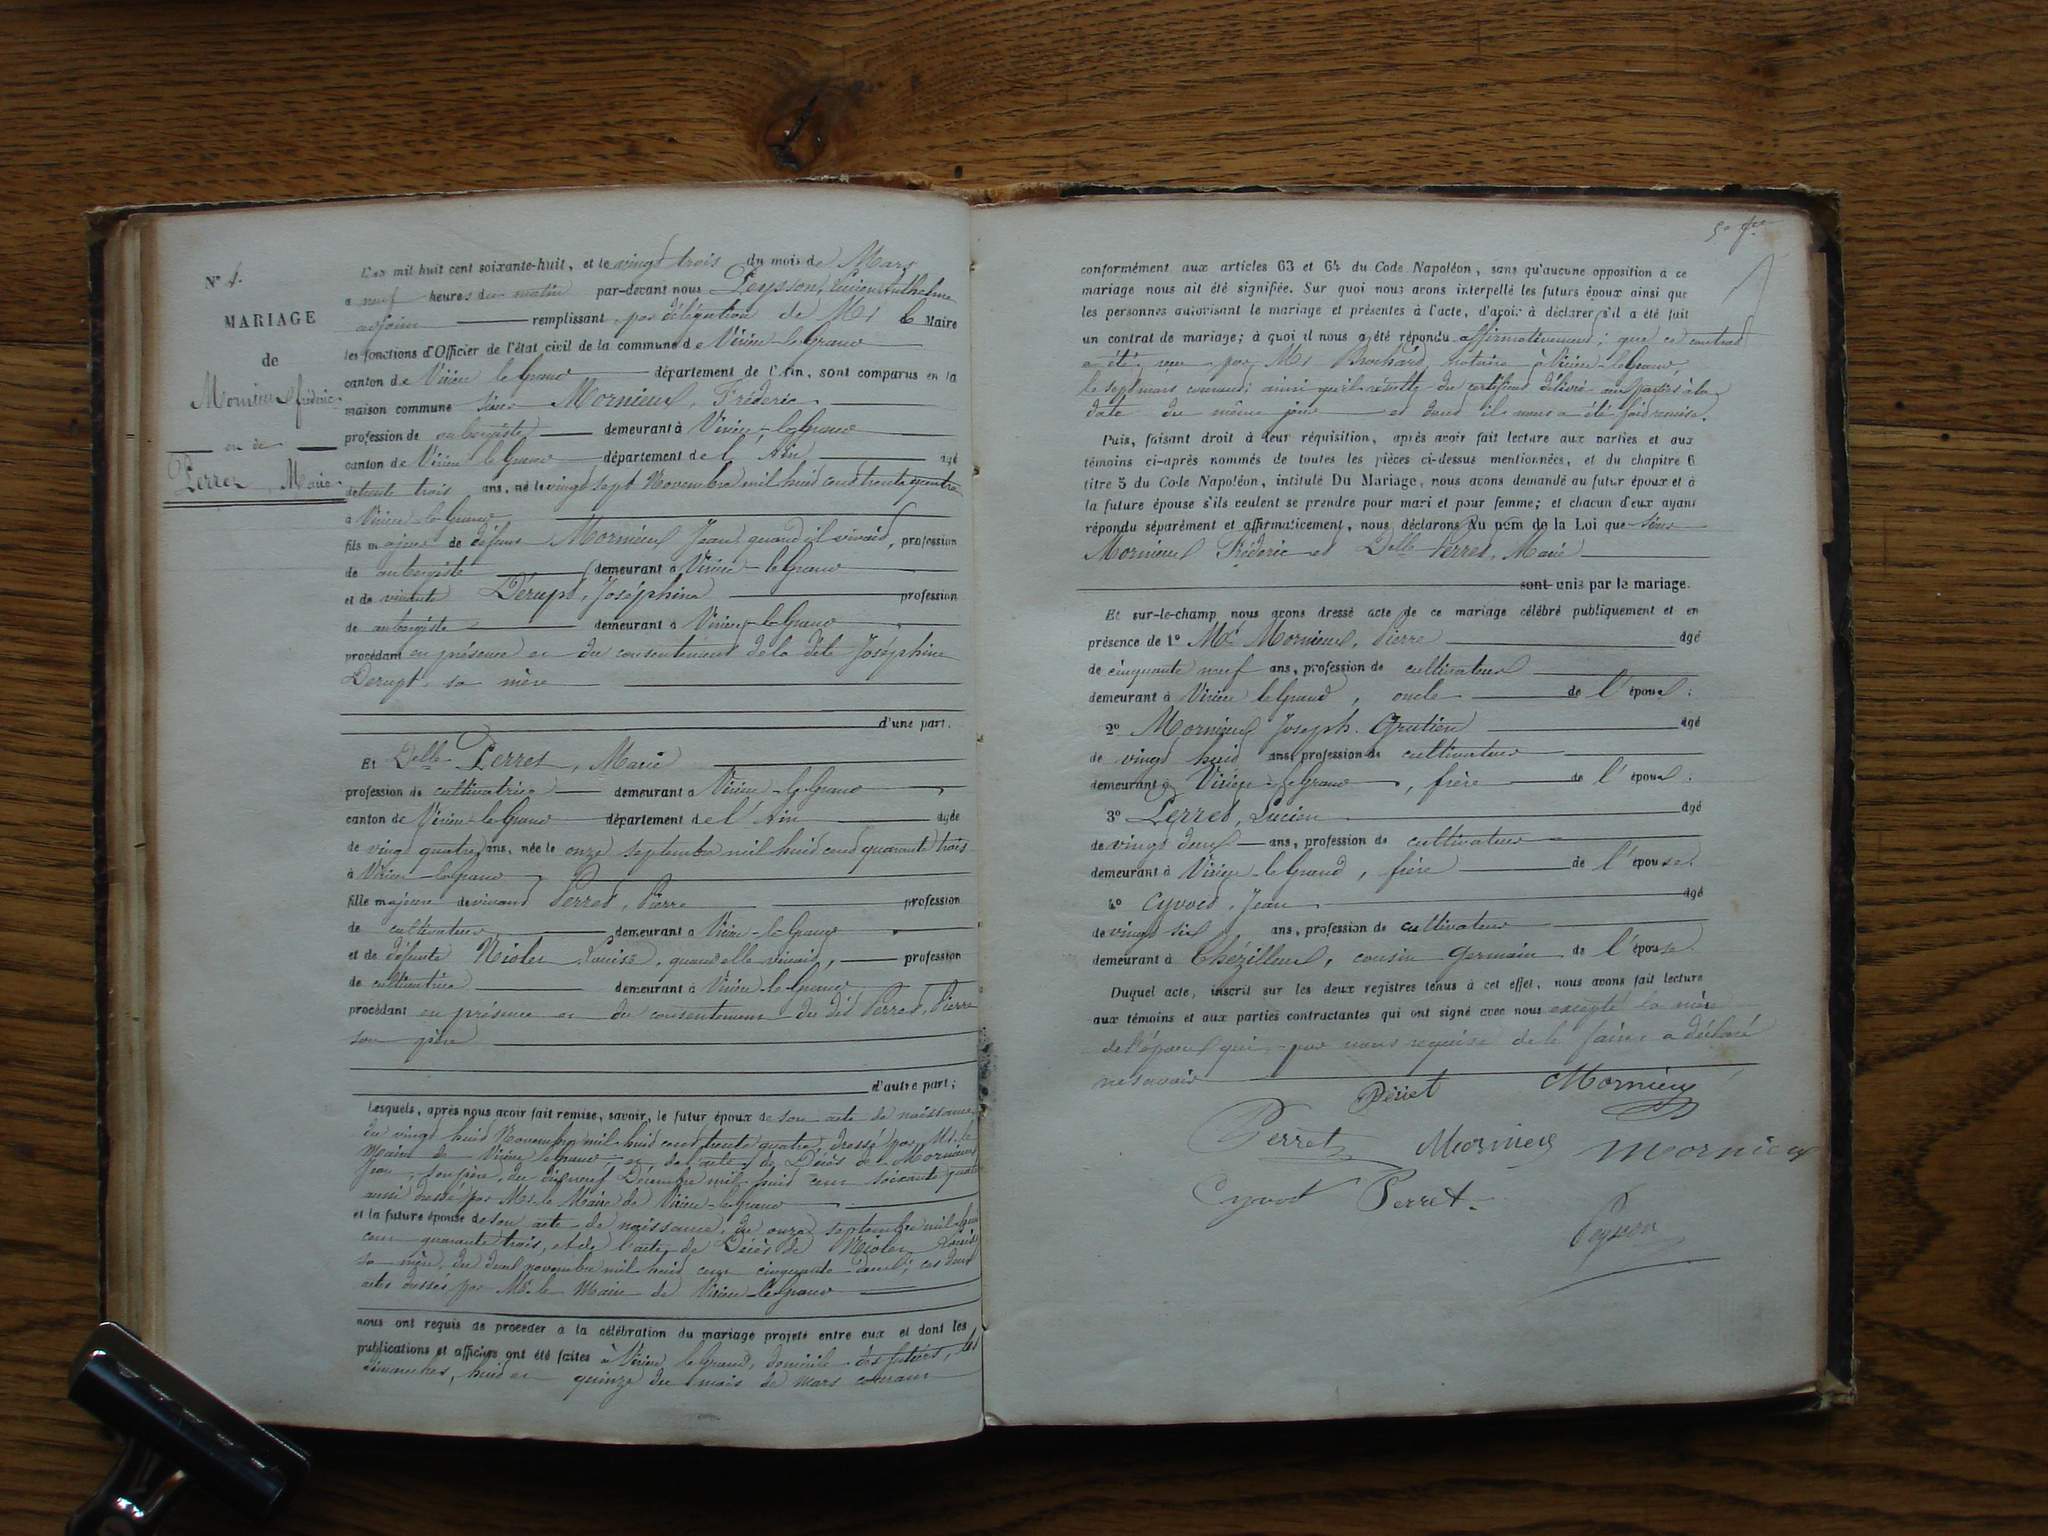 N° 4.
MARIAGE
de
Mornieux Fréderic
et de
Perret, Marie
L'an mil huit cent soixante-huit, et le vingt trois du mois de Mars
a neuf heures du matin par-devant nous Peysson, Lucien Anthelme
adjoint remplissant par délégation de Mr le Maire
les fonctions d'Officier de l'état civil de la commune de Virieu-le-Grand
canton de Virieu le Grand département de l'Ain, sont comparus en la
maison commune sieur Mornieux, Fréderic
profession de aubergiste demeurant à Virieu-le-Grand
canton de Virieu le Grand département de l'Ain agé
de trente trois ans, né le vingt sept Novembre mil huit cent trente quatre
à Virieu-le-Grand
fils majeur de défunt Mornieux Jean quand il vivait, profession
de aubergiste demeurant à Virieu-le-Grand
et de vivante Dérupt, Joséphine profession
de aubergiste demeurant à Virieu-le-Grand
procédant en présence et du consentement de la dite Joséphine
Derupt, sa mère
d'une part.
Et Delle Perret, Marie
profession de cultivatrice demeurant à Virieu-le-Grand
canton de Virieu-le-Grand département de l'Ain agée
de vingt quatre ans, née le onze septembre mil huit cent quarante trois
à Virieu-le-Grand
fille majeure de vivant Perret, Pierre profession
de cultivateur demeurant à Virieu-le-Grand
et de défunte Niolet Louise, quand elle vivait, profession
de cultivatrice demeurant à Virieu-le-Grand
procédant en présence et du consentement du dit Perret, Pierre
son père
d'autre part;
Lesquels, après nous avoir fait remise, savoir, le futur époux de son acte de naissance
du vingt huit Novembre mil huit cent trente quatre, dressé par Mr le
Maire de Virieu le Grand, et de l'acte de Décès de Mornieux
Jean, son père, du dix neuf Décembre mil huit cent soixante quatre
aussi dressé par Mr le Maire de Virieu-le-Grand
et la future épouse de son acte de naissance, du onze septembre mil huit
cent quarante trois, et de l'acte de Décès de Niolet Louise
sa mère, du deux novembre mil huit cent cinquante deux, ces deux
actes dressés par Mr le Maire de Virieu-le-Grand
nous ont requis de procéder à la célébration du mariage projeté entre eux et dont les
publications et affiches ont été faites à Virieu le Grand, domicile des futurs, les
dimanches, huit et quinze du mois de mars courant
conformément aux articles 63 et 64 du Code Napoléon, sans qu'aucune opposition à ce
mariage nous ait été signifiée. Sur quoi nous avons interpellé les futurs époux ainsi que
les personnes autorisant le mariage et présentes à l'acte, d'avoir à déclarer s'il a été fait
un contrat de mariage; à quoi il nous a été répondu affirmativement; que ce contrat
a été reçu par Mr Brochard, notaire à Virieu-le-Grand,
le sept mars courant; ainsi qu'il résulte du certificat délivré aux parties à la
date du même jour et dont il nous a été fait remise.
Puis, faisant droit à leur réquisition, après avoir fait lecture aux parties et aux
témoins ci-après nommés de toutes les pièces ci-dessus mentionnées, et du chapitre 6
titre 5 du Code Napoléon, intitulé Du Mariage, nous avons demandé au futur époux et à
la future épouse s'ils veulent se prendre pour mari et pour femme; et chacun d'eux ayant
répondu séparément et affirmativement, nous déclarons au nom de la Loi que sieur
Mornieux Fréderic et Delle Perret, Marie
sont unis par le mariage.
Et sur-le-champ nous avons dressé acte de ce mariage célébré publiquement et en
présence de 1° Mr Mornieux, Pierre agé
de cinquante neuf ans, profession de cultivateur
demeurant à Virieu le Grand, oncle de l'époux;
2° Mornieux Joseph Gratien agé
de vingt huit ans, profession de cultivateur
demeurant à Virieu-le-Grand, frère de l'époux;
3° Perret, Lucien agé
de vingt deux ans, profession de cultivateur
demeurant à Virieu-le-Grand, frère de l'épouse.
4° Cyvoct, Jean agé
de vingt six ans, profession de cultivateur
demeurant à Chézilleux, cousin germain de l'épouse
Duquel acte, inscrit sur les deux registres tenus à cet effet, nous avons fait lecture
aux témoins et aux parties contractantes qui ont signé avec nous excepté la mère
de l'époux qui par nous requise de le faire a déclaré
ne savoir
Perret Mornieux
Perret Mornieux Mornieux
Cyvoct Perret
Peysson